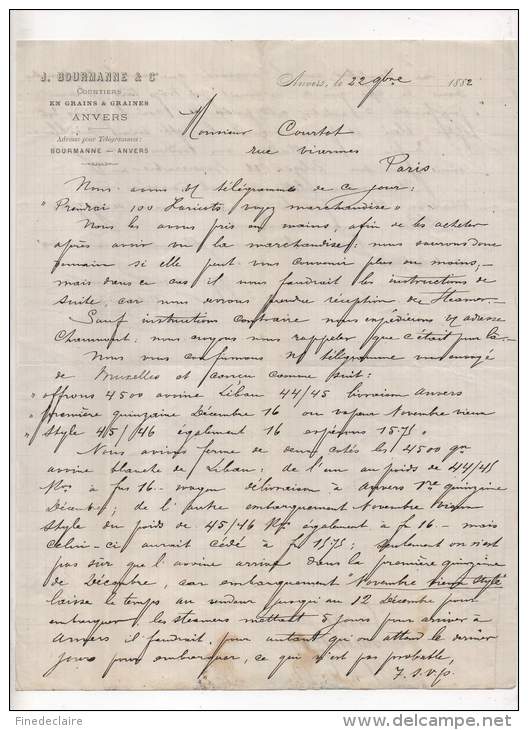 J. BOURMANNE & Cº
COURTIERS
EN GRAINS & GRAINES
ANVERS
Adresse pour Télégrammes:
BOURMANNE - ANVERS
Anvers, le 22 9bre 1882
Monsieur Courtot
rue
Paris
Nous avons télégramme de ce jour:
" Prendrai 100 Haricots voyez marchandise "
Nous les avons pris en mains, afin de les acheter
après avoir vu la marchandise; nous saurons donc
demain si elle peut vous convenir plus ou moins,-
mais dans ce cas il nous faudrait les instructions de
suite, car nous devrons prendre réception de Steamer.-
Sauf instructions contraire nous expédierons adresse
Chaumont; nous croyons nous rappeler que c'était pour là.-
Nous vous confirmons télégramme vous envoyé
de Bruxelles et conçu comme suit:
" offrons 4500 avoine Libau 44/45 livraison Anvers
" première quinzaine Décembre 16 ou vapeur Novembre vieux
" style 45/46 également 16 espérons 15.75 "
Nous avions ferme de deux cotés les 4500 qx
avoine blanche de Libau: de l'un au poids de 44/45
Ko à frs 16.- wagon délivraison à Anvers 1re quinzaine
Décembre; de l'autre embarquement Novembre vieux
style du poids de 45/46 Ko également à f 16.- mais
celui-ci aurait cédé à f 15.75; seulement on n'est
pas sûr que l'avoine arrive dans la première quinzaine
de Décembre, car embarquement "Novembre vieux style"
laisse le temps au vendeur jusqu'au 12 Décembre pour
embarquer, les steamers mettant 5 jours pour arriver à
Anvers il faudrait, pour autant qu'on attend le dernier
jour pour embarquer, ce qui n'est pas probable,
T.S.V.P.
Finedeclaire
www.delcampe.net